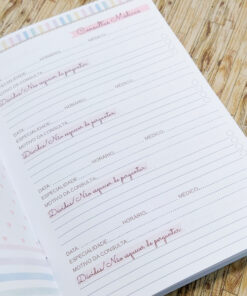 Consultas Médicas
HORÁRIO: MÉDICO:
ESPECIALIDADE:
MOTIVO DA CONSULTA:
Dúvidas/Não esquecer de perguntar:
DATA: HORÁRIO: MÉDICO:
ESPECIALIDADE:
MOTIVO DA CONSULTA:
Dúvidas/Não esquecer de perguntar:
DATA: HORÁRIO: MÉDICO:
ESPECIALIDADE:
MOTIVO DA CONSULTA:
Dúvidas/Não esquecer de perguntar:
DATA: HORÁRIO: MÉDICO:
ESPECIALIDADE:
MOTIVO DA CONSULTA:
Dúvidas/Não esquecer de perguntar: